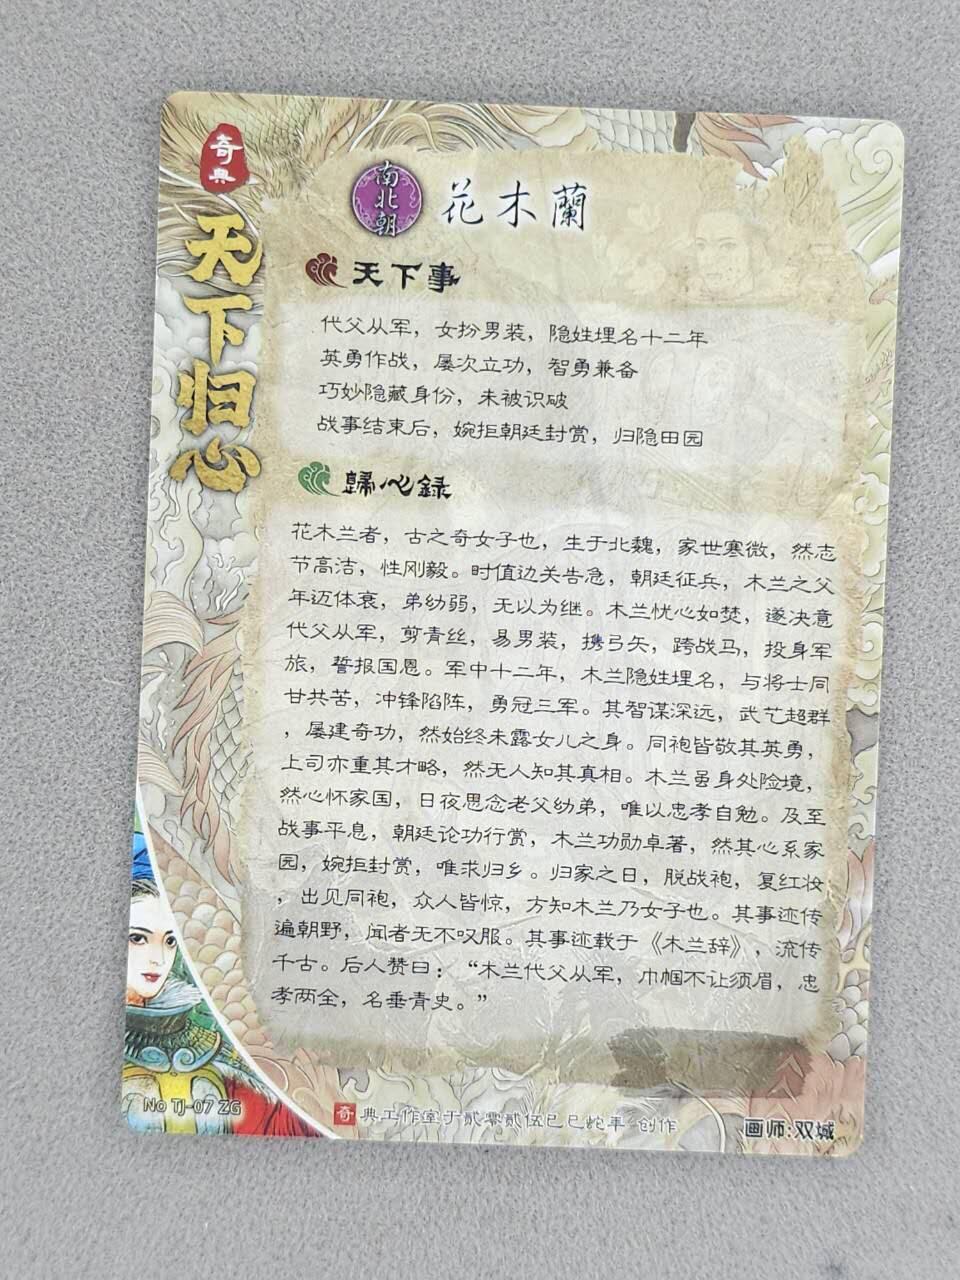 奇典
天下归心
南北朝
花木蘭
天下事
代父从军，女扮男装，隐姓埋名十二年
英勇作战，屡次立功，智勇兼备
巧妙隐藏身份，未被识破
战事结束后，婉拒朝廷封赏，归隐田园
歸心録
花木兰者，古之奇女子也，生于北魏，家世寒微，然志
节高洁，性刚毅。时值边关告急，朝廷征兵，木兰之父
年迈体衰，弟幼弱，无以为继。木兰忧心如焚，遂决意
代父从军，剪青丝，易男装，携弓矢，跨战马，投身军
旅，誓报国恩。军中十二年，木兰隐姓埋名，与将士同
甘共苦，冲锋陷阵，勇冠三军。其智谋深远，武艺超群
，屡建奇功，然始终未露女儿之身。同袍皆敬其英勇，
上司亦重其才略，然无人知其真相。木兰虽身处险境，
然心怀家国，日夜思念老父幼弟，唯以忠孝自勉。及至
战事平息，朝廷论功行赏，木兰功勋卓著，然其心系家
园，婉拒封赏，唯求归乡。归家之日，脱战袍，复红妆
，出见同袍，众人皆惊，方知木兰乃女子也。其事迹传
遍朝野，闻者无不叹服。其事迹载于《木兰辞》，流传
千古。后人赞曰：“木兰代父从军，巾帼不让须眉，忠
孝两全，名垂青史。”
No TJ-07 ZG
奇典工作室于贰零贰伍已巳蛇年 创作
画师:双城